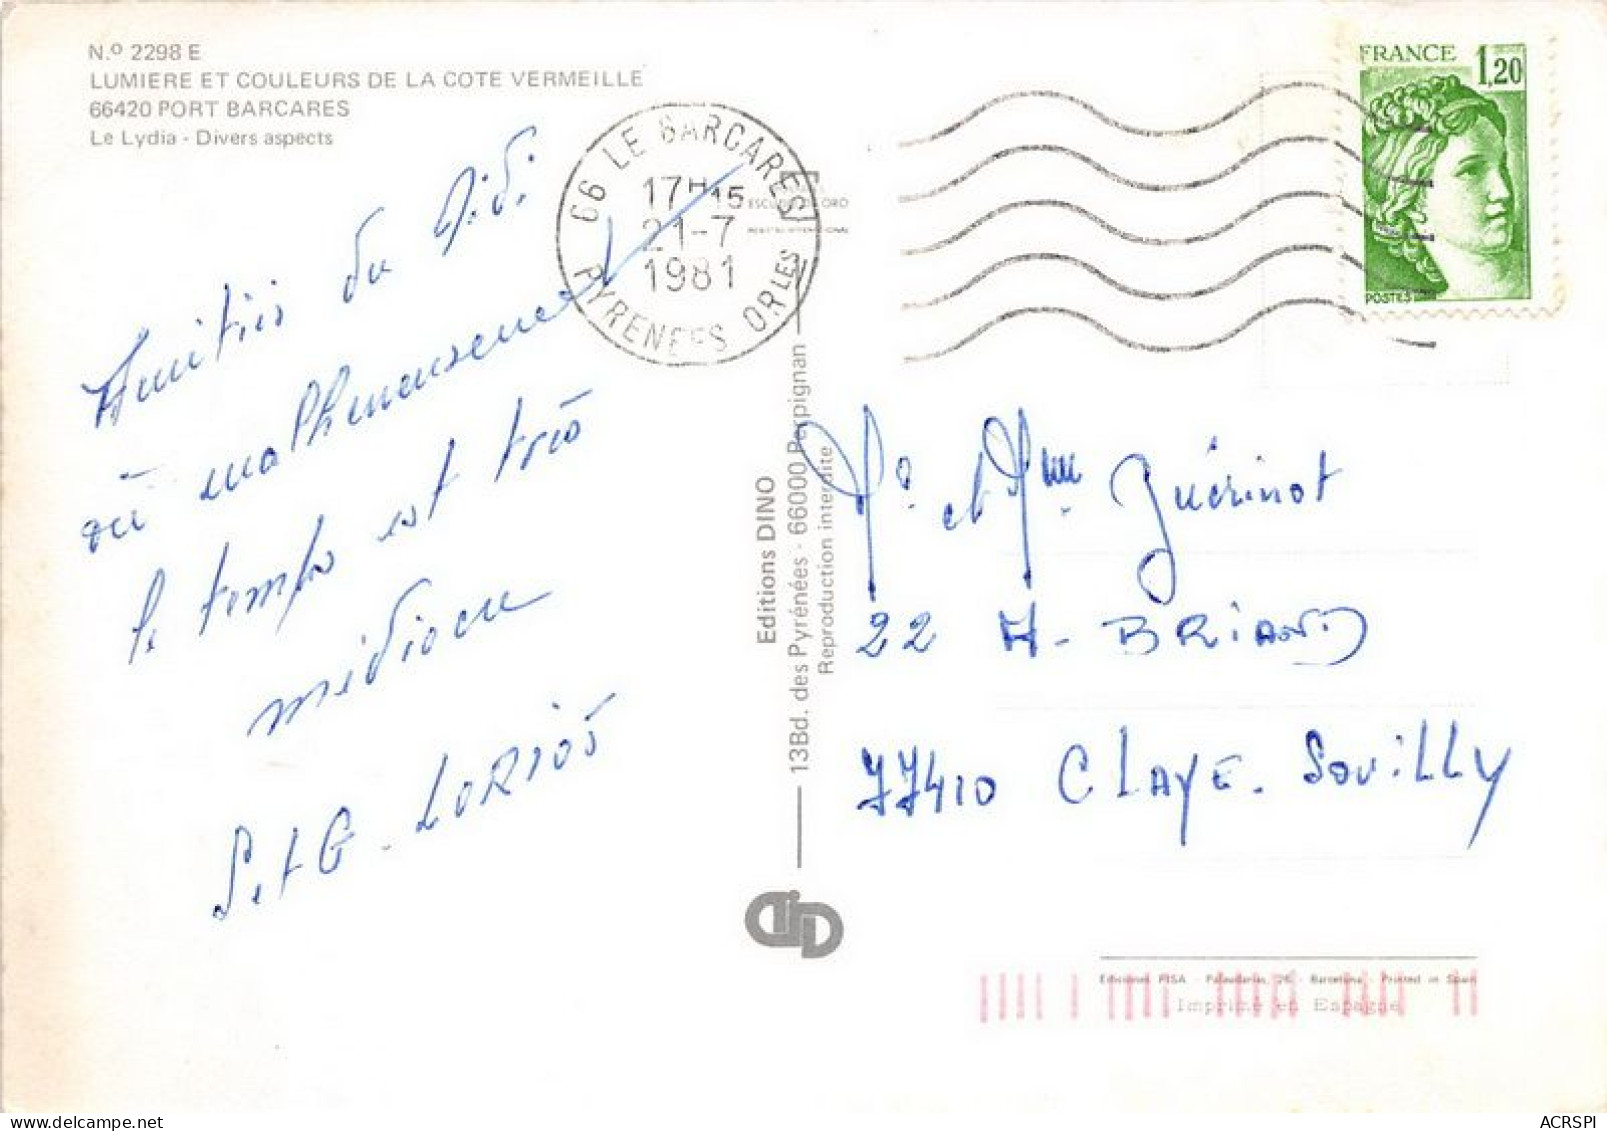 N.º 2298 E
LUMIERE ET COULEURS DE LA COTE VERMEILLE
66420 PORT BARCARES
Le Lydia - Divers aspects
Amitiés du
où malheureusement
le temps est très
médiocre
S. et G. LORIOS
66 LE BARCARES
17H15
21-7
1981
PYRENEES ORLES
FRANCE 1,20
POSTES
Editions DINO
13Bd. des Pyrénées - 66000 Perpignan
Reproduction interdite
Mr et Mme Guérinot
22 A. BRIAND
77410 CLAYE. SOUILLY
Ediciones PISA - Palaudarias, 26 - Barcelona - Printed in Spain
Imprimé en Espagne
ACRSPI